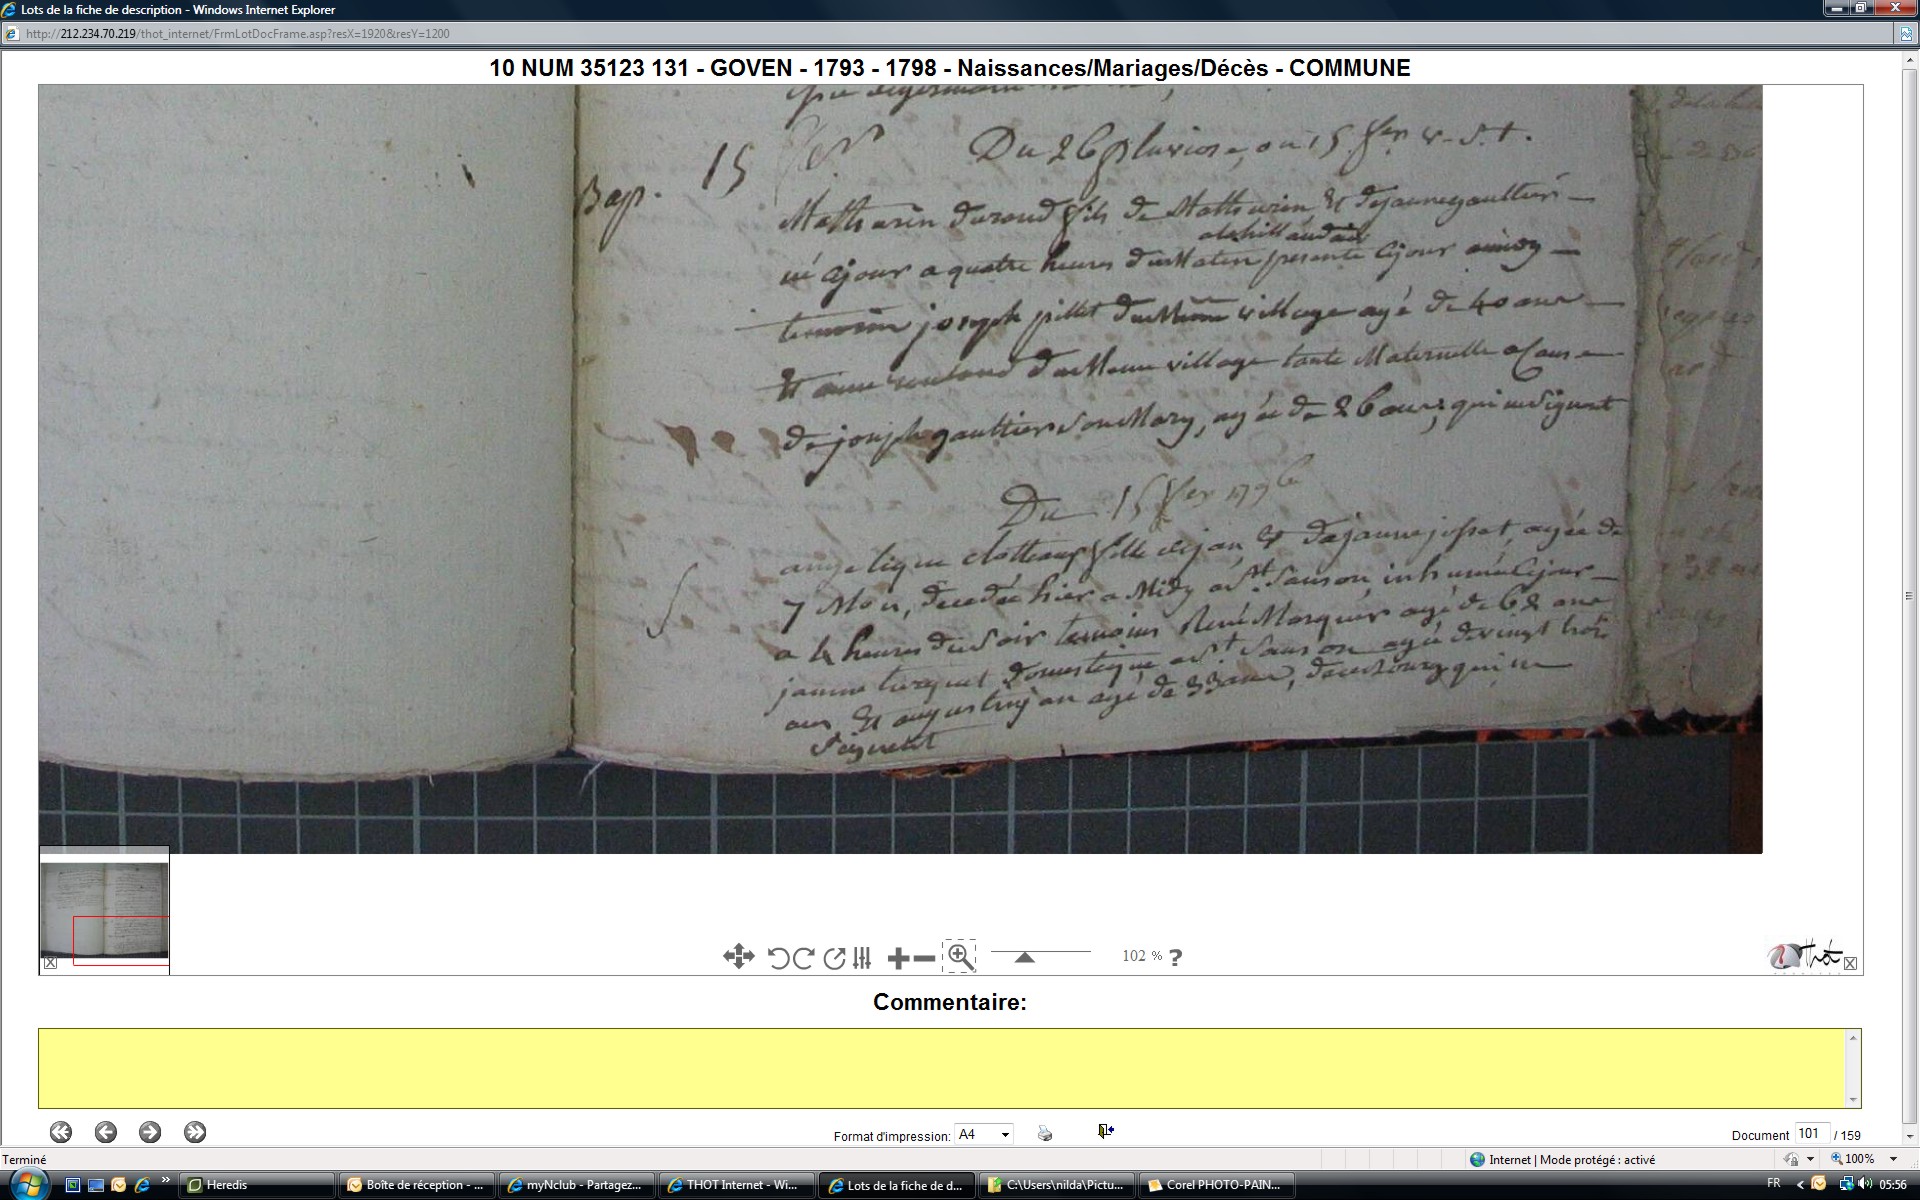 Lots de la fiche de description - Windows Internet Explorer
http://212.234.70.219/thot_internet/FrmLotDocFrame.asp?resX=1920&resY=1200
10 NUM 35123 131 - GOVEN - 1793 - 1798 - Naissances/Mariages/Décès - COMMUNE
Du 26 pluviose, ou 15 fer v. st.
Bap. 15 fer
Mathurin durand fils de Mathurin & de jeanne gaultier
né cejour a quatre heures du Matin presenté cejour a midy
temoin joseph pillet du Même village agé de 40 ans
Et anne du Meme village tante Maternelle a Cause
de joseph gaultier son Mary, agée de 26 ans, qui ne signent
Du 15 fer 1796
angelique clotteaux fille de jan & de jeanne josset, agée de
7 Mois, decedée hier a Midy a St. Sanson inhumée cejour
a 4 heures du Soir temoins René Marquer agé de 62 ans
janne turquet Domestique a St. Sanson agée de vingt huit
ans Et augustin jan agé de 33 ans, de ce bourg qui ne
signent
102 %
?
Thot
Commentaire:
Format d'impression: A4
Document 101 / 159
Terminé
Internet | Mode protégé : activé
100%
Heredis
Boîte de réception - ...
myNclub - Partagez...
THOT Internet - Wi...
Lots de la fiche de d...
C:\Users\nilda\Pictu...
Corel PHOTO-PAIN...
FR
05:56